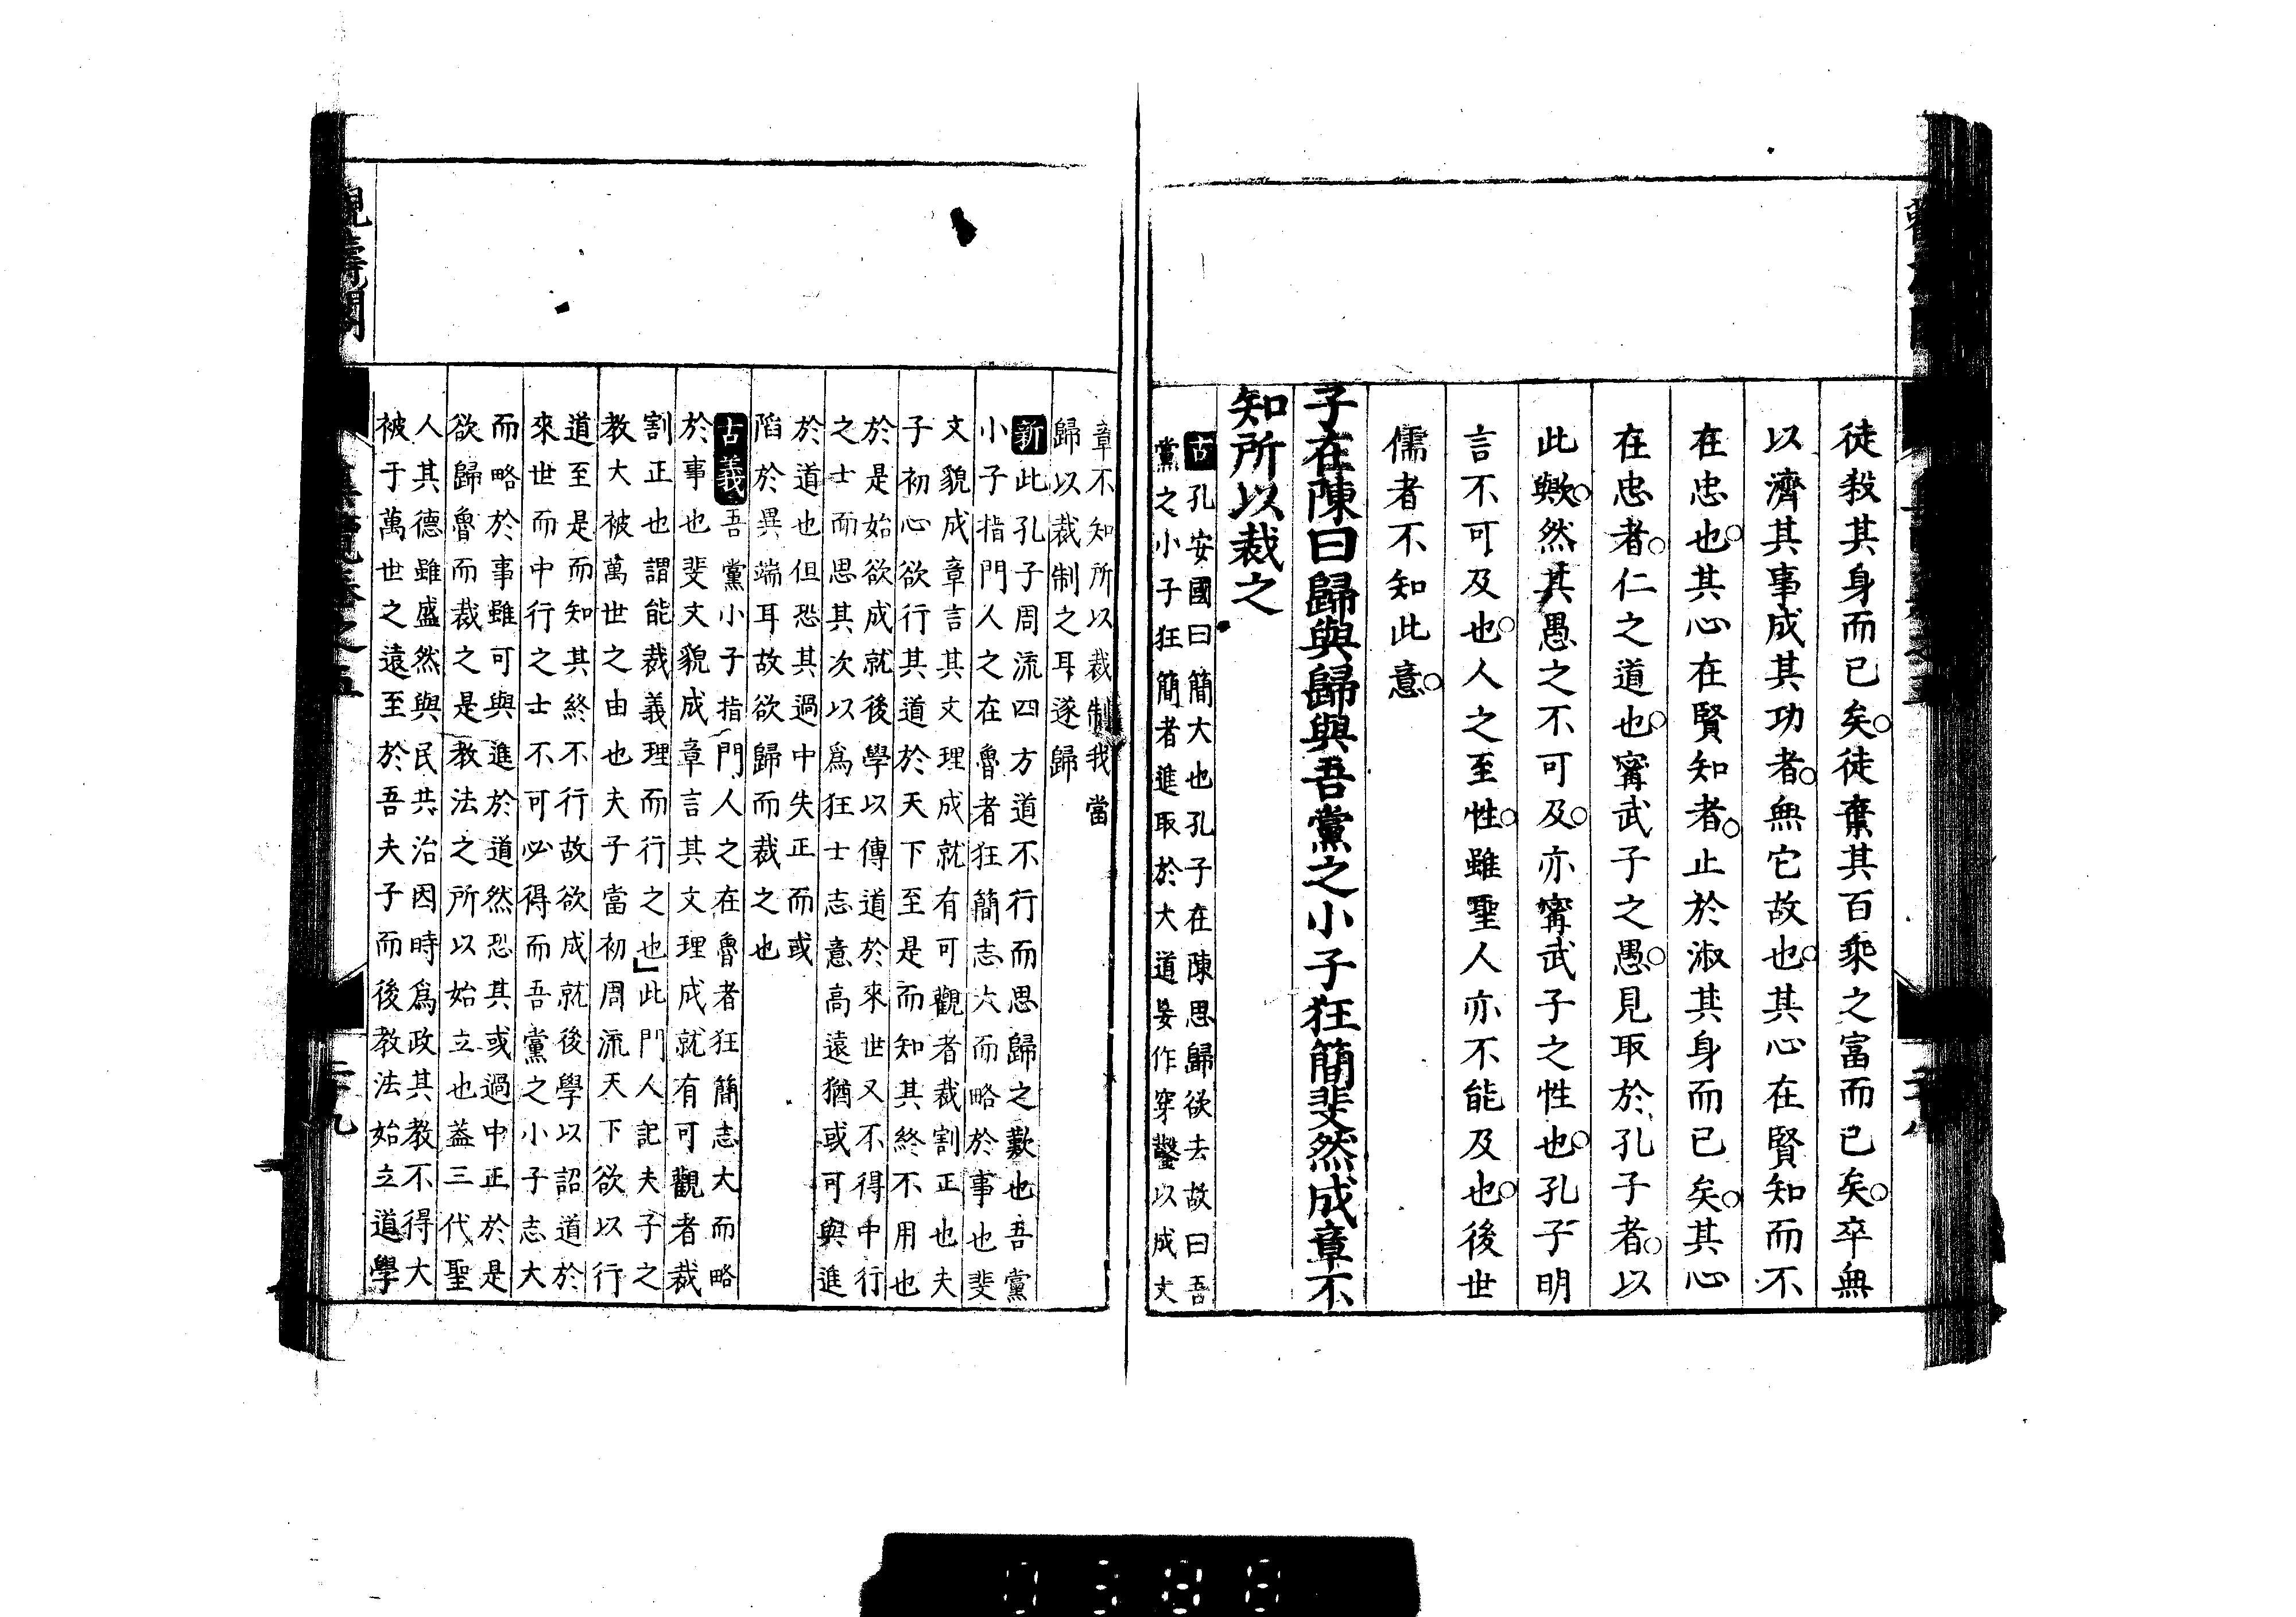 徒殺其身而已矣徒棄其百乘之富而已矣卒無
以濟其事成其功者無它故也其心在賢知而不
在忠也其心在賢知者止於淑其身而已矣其心
在忠者仁之道也甯武子之愚見取於孔子者以
此歟然其愚之不可及亦甯武子之性也孔子明
言不可及也人之至性雖聖人亦不能及也後世
儒者不知此意
子在陳曰歸與歸與吾黨之小子狂簡斐然成章不
知所以裁之
古孔安國曰簡大也孔子在陳思歸欲去故曰吾
黨之小子狂簡者進取於大道妄作穿鑿以成文
章不知所以裁制我當
歸以裁制之耳遂歸
新此孔子周流四方道不行而思歸之歎也吾黨
小子指門人之在魯者狂簡志大而略於事也斐
文貌成章言其文理成就有可觀者裁割正也夫
子初心欲行其道於天下至是而知其終不用也
於是始欲成就後學以傳道於來世又不得中行
之士而思其次以爲狂士志意高遠猶或可與進
於道也但恐其過中失正而或
陷於異端耳故欲歸而裁之也
古義吾黨小子指門人之在魯者狂簡志大而略
於事也斐文貌成章言其文理成就有可觀者裁
割正也謂能裁義理而行之也」此門人記夫子之
教大被萬世之由也夫子當初周流天下欲以行
道至是而知其終不行故欲成就後學以詔道於
來世而中行之士不可必得而吾黨之小子志大
而略於事雖可與進於道然恐其或過中正於是
欲歸魯而裁之是教法之所以始立也蓋三代聖
人其德雖盛然與民共治因時爲政其教不得大
被于萬世之遠至於吾夫子而後教法始立道學